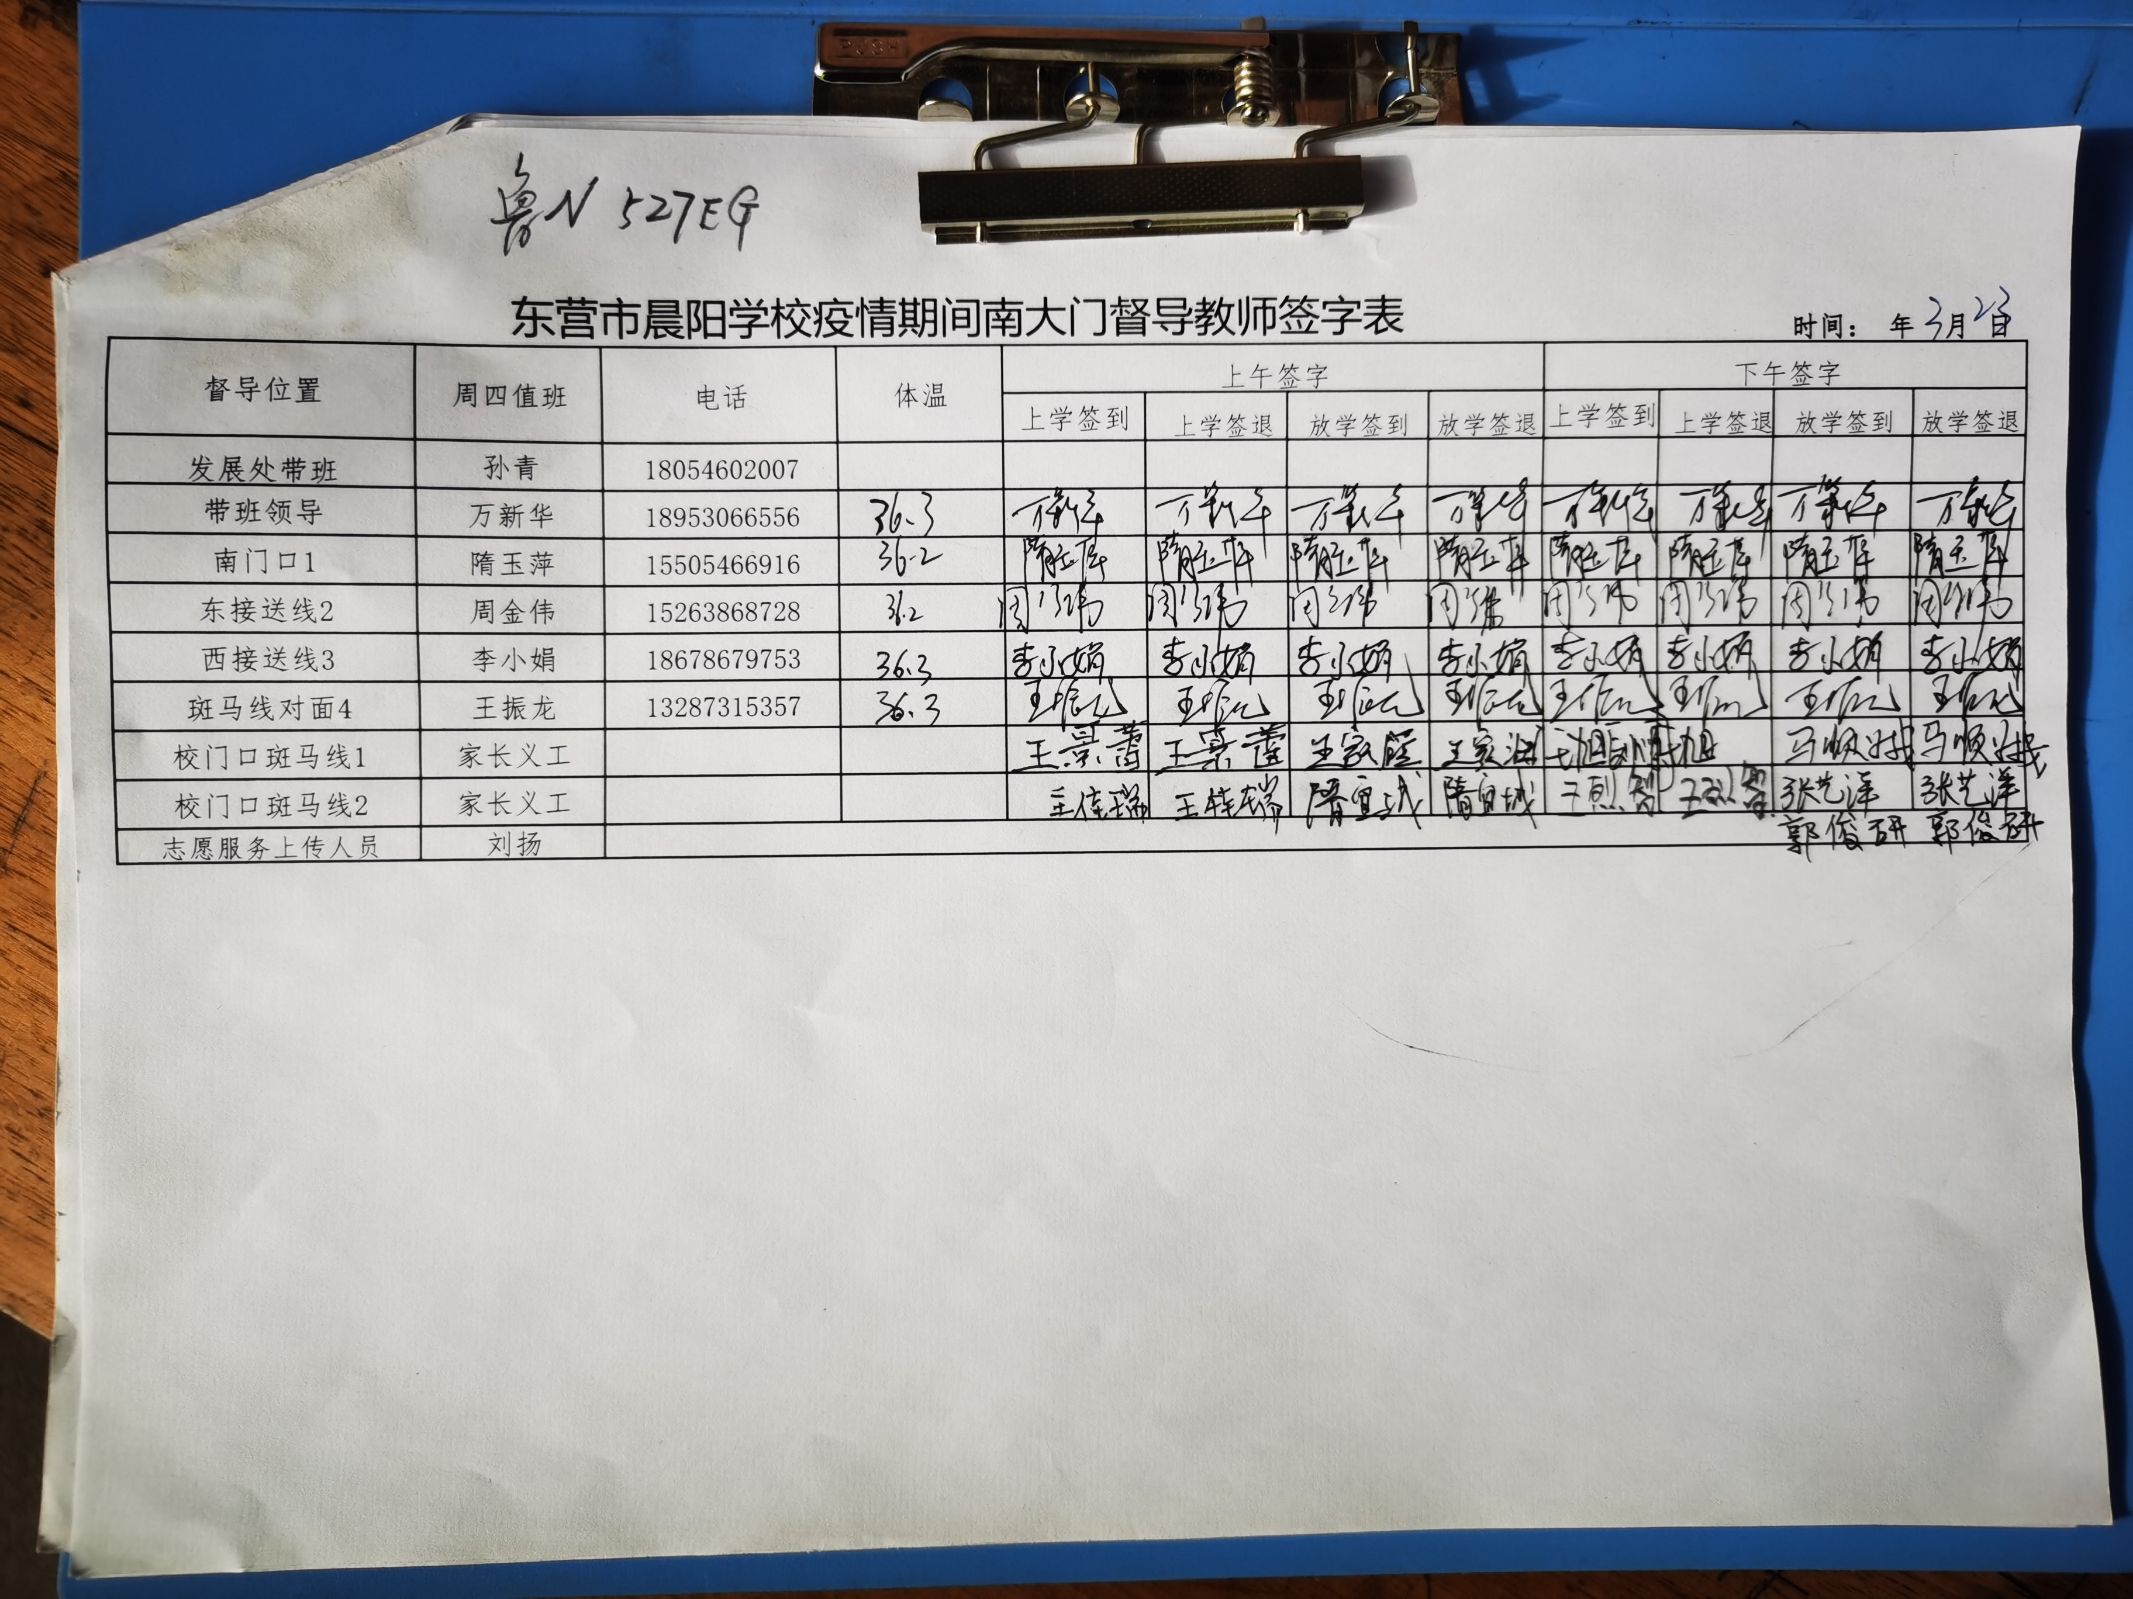 PUSH
鲁N 527EG
东营市晨阳学校疫情期间南大门督导教师签字表
时间: 年 3月 23日
督导位置 周四值班 电话 体温 上午签字 下午签字
上学签到 上学签退 放学签到 放学签退 上学签到 上学签退 放学签到 放学签退
发展处带班 孙青 18054602007
带班领导 万新华 18953066556 36.3 万新华 万新华 万新华 万新华 万新华 万新华 万新华 万新华
南门口1 隋玉萍 15505466916 36.2 隋玉萍 隋玉萍 隋玉萍 隋玉萍 隋玉萍 隋玉萍 隋玉萍 隋玉萍
东接送线2 周金伟 15263868728 36.2 周金伟 周金伟 周金伟 周金伟 周金伟 周金伟 周金伟 周金伟
西接送线3 李小娟 18678679753 36.3 李小娟 李小娟 李小娟 李小娟 李小娟 李小娟 李小娟 李小娟
斑马线对面4 王振龙 13287315357 36.3 王振龙 王振龙 王振龙 王振龙 王振龙 王振龙 王振龙 王振龙
校门口斑马线1 家长义工 王景蕾 王景蕾
校门口斑马线2 家长义工 王佳瑞 王佳瑞 隋宜城 隋宜城 张艺洋 张艺洋
志愿服务上传人员 刘扬 郭俊研 郭俊研